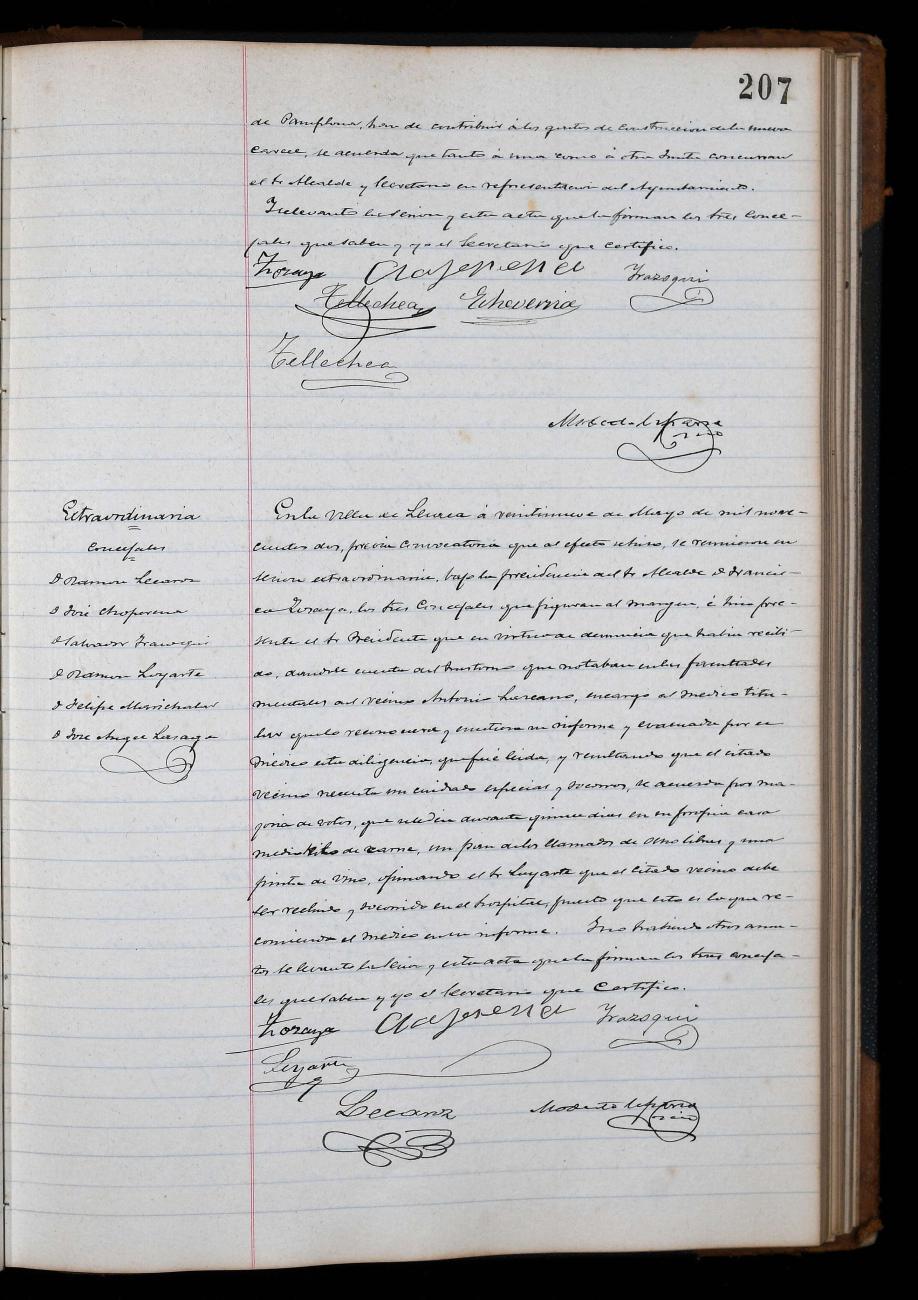 207
de Pamplona, han de contribuir á los gastos de construccion de la nueva
carcel, se acuerda que tanto á una como á otra Junta concurran
el Sr Alcalde y Secretario en representacion del Ayuntamiento.
Se levantó la sesion y esta acta que la firman los Sres Conce-
jales que saben y yo el Secretario que certifico.
Zozaya Choperena Irazoqui
Tellechea Echeverria
Tellechea
Extraordinaria
Concejales
D Ramon Lecaroz
D José Choperena
D Salvador Irazoqui
D Ramon Loyarte
D Felipe Marichalar
D José Angel Lasaga
En la Villa de Lesaca á veintinueve de Mayo de mil nove-
cientos dos, previa convocatoria que al efecto se hizo, se reunieron en
sesion extraordinaria, bajo la presidencia del Sr Alcalde D Francis-
co Zozaya, los Sres Concejales que figuran al margen, é hizo pre-
sente el Sr Presidente que en virtud de denuncia que habia recibi-
do, dandole cuenta del trastorno que notaban en las facultades
mentales del vecino Antonio, encargó al medico titu-
lar que lo reconociera y emitiera su informe y evacuada por el
medico esta diligencia, que fué leida, y resultando que el citado
vecino necesita un cuidado especial y socorros, se acuerda por ma-
yoria de votos, que se le den durante quince dias en su propia casa
medio kilo de carne, un pan de los llamados de ocho libras y una
pinta de vino, opinando el Sr Loyarte que el citado vecino debe
ser recluido y socorrido en el hospital, puesto que esto es lo que re-
comienda el medico en su informe. Y no habiendo otros asun-
tos se levantó la sesion y esta acta que la firman los Sres conceja-
les que saben y yo el Secretario que certifico.
Zozaya Choperena Irazoqui
Loyarte
Lecaroz Modesto